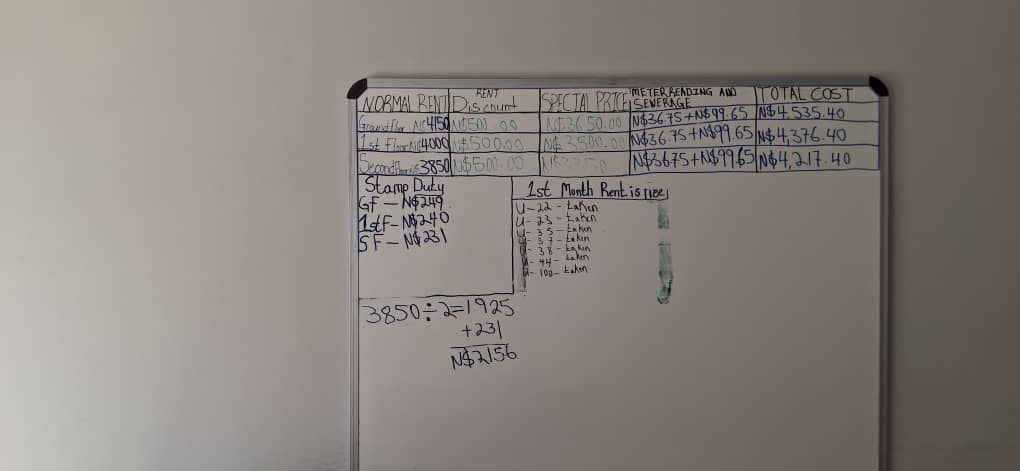 NORMAL RENT RENT Discount SPECIAL PRICE METER READING AND SEWERAGE TOTAL COST
Ground floor N$4150 N$500.00 N$3650.00 N$36.75+N$99.65 N$4,535.40
1st Floor N$4000 N$500.00 N$3,500.00 N$36.75+N$99.65 N$4,376.40
Second 3850 N$500.00 N$36.75+N$99.65 N$4,217.40
Stamp Duty
GF – N$249
1stF – N$240
SF – N$231
1st Month Rent is
U-22 - taken
U-23 - taken
U-35 - taken
37 - taken
38 - taken
44 - taken
100 - taken
3850÷2=1925
+231
N$2156